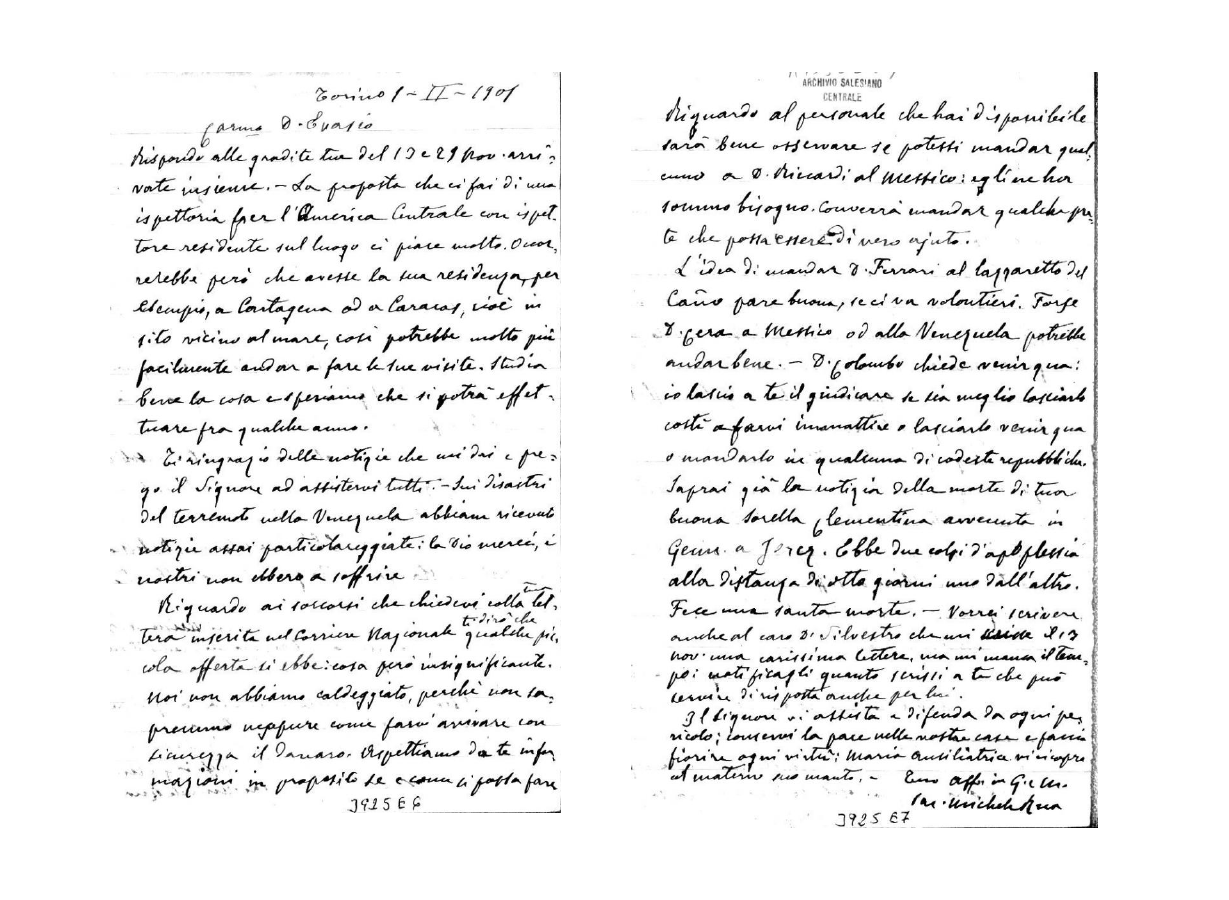 Torino 1-II-1901
Carmo D. Evasio
Rispondo alle gradite tue del 13 e 29 Nov. arri-
vate insieme. - La proposta che ci fai di una
ispettoria per l'America Centrale con ispet-
tore residente sul luogo ci piace molto. Occor-
rerebbe però che avesse la sua residenza, per
esempio, a Cartagena od a Caracas, cioè in
sito vicino al mare, così potrebbe molto più
facilmente andar a fare le sue visite. Studia
bene la cosa e speriamo che si potrà effet-
tuare fra qualche anno.
Ti ringrazio delle notizie che mi dai e pre-
go il Signore ad assistervi tutti. - Sui disastri
del terremoto nella Venezuela abbiam ricevuto
notizie assai particolareggiate: la Dio mercé, i
nostri non ebbero a soffrire
Riguardo ai soccorsi che chiedevi colla tua let-
tera inserita nel Corriere Nazionale ti dirò che qualche pic-
cola offerta si ebbe: cosa però insignificante.
Noi non abbiamo caldeggiato, perché non sa-
premmo neppure come farvi arrivare con
sicurezza il danaro. Aspettiamo da te infor
mazioni in proposito se e come si possa fare
3925 E 6
ARCHIVIO SALESIANO
CENTRALE
Riguardo al personale che hai disponibile
sarà bene osservare se potessi mandar qual-
cuno a D. Riccardi al Messico: egli ne ha
sommo bisogno. Converrà mandar qualche pre-
te che possa essere di vero ajuto.
L'idea di mandar D. Ferrari al lazzaretto del
Caño pare buona, se ci va volontieri. Forse
D. Cera a Messico od alla Venezuela potrebbe
andar bene. - D. Colombo chiede venir qua:
io lascio a te il giudicare se sia meglio lasciarlo
costì a farvi imanattire o lasciarlo venir qua
o mandarlo in qualcuna di codeste repubbliche.
Saprai già la notizia della morte di tua
buona sorella Clementina avvenuta in
Genn. a Jerez. Ebbe due colpi d'apoplessia
alla distanza di otto giorni uno dall'altro.
Fece una santa morte. - Vorrei scrivere
anche al caro D. Silvestro che mi il 13
nov. una carissima lettera, ma mi manca il tem-
po: notificagli quanto scrissi a te che può
servire di risposta anche per lui.
Il Signore vi assista e difenda da ogni pe-
ricolo; conservi la pace nelle nostre case e faccia
fiorire ogni virtù; Maria Ausiliatrice vi ricopra
col materno suo manto. - Tuo aff. in G. e M.
Sac. Michele Rua
3925 E7